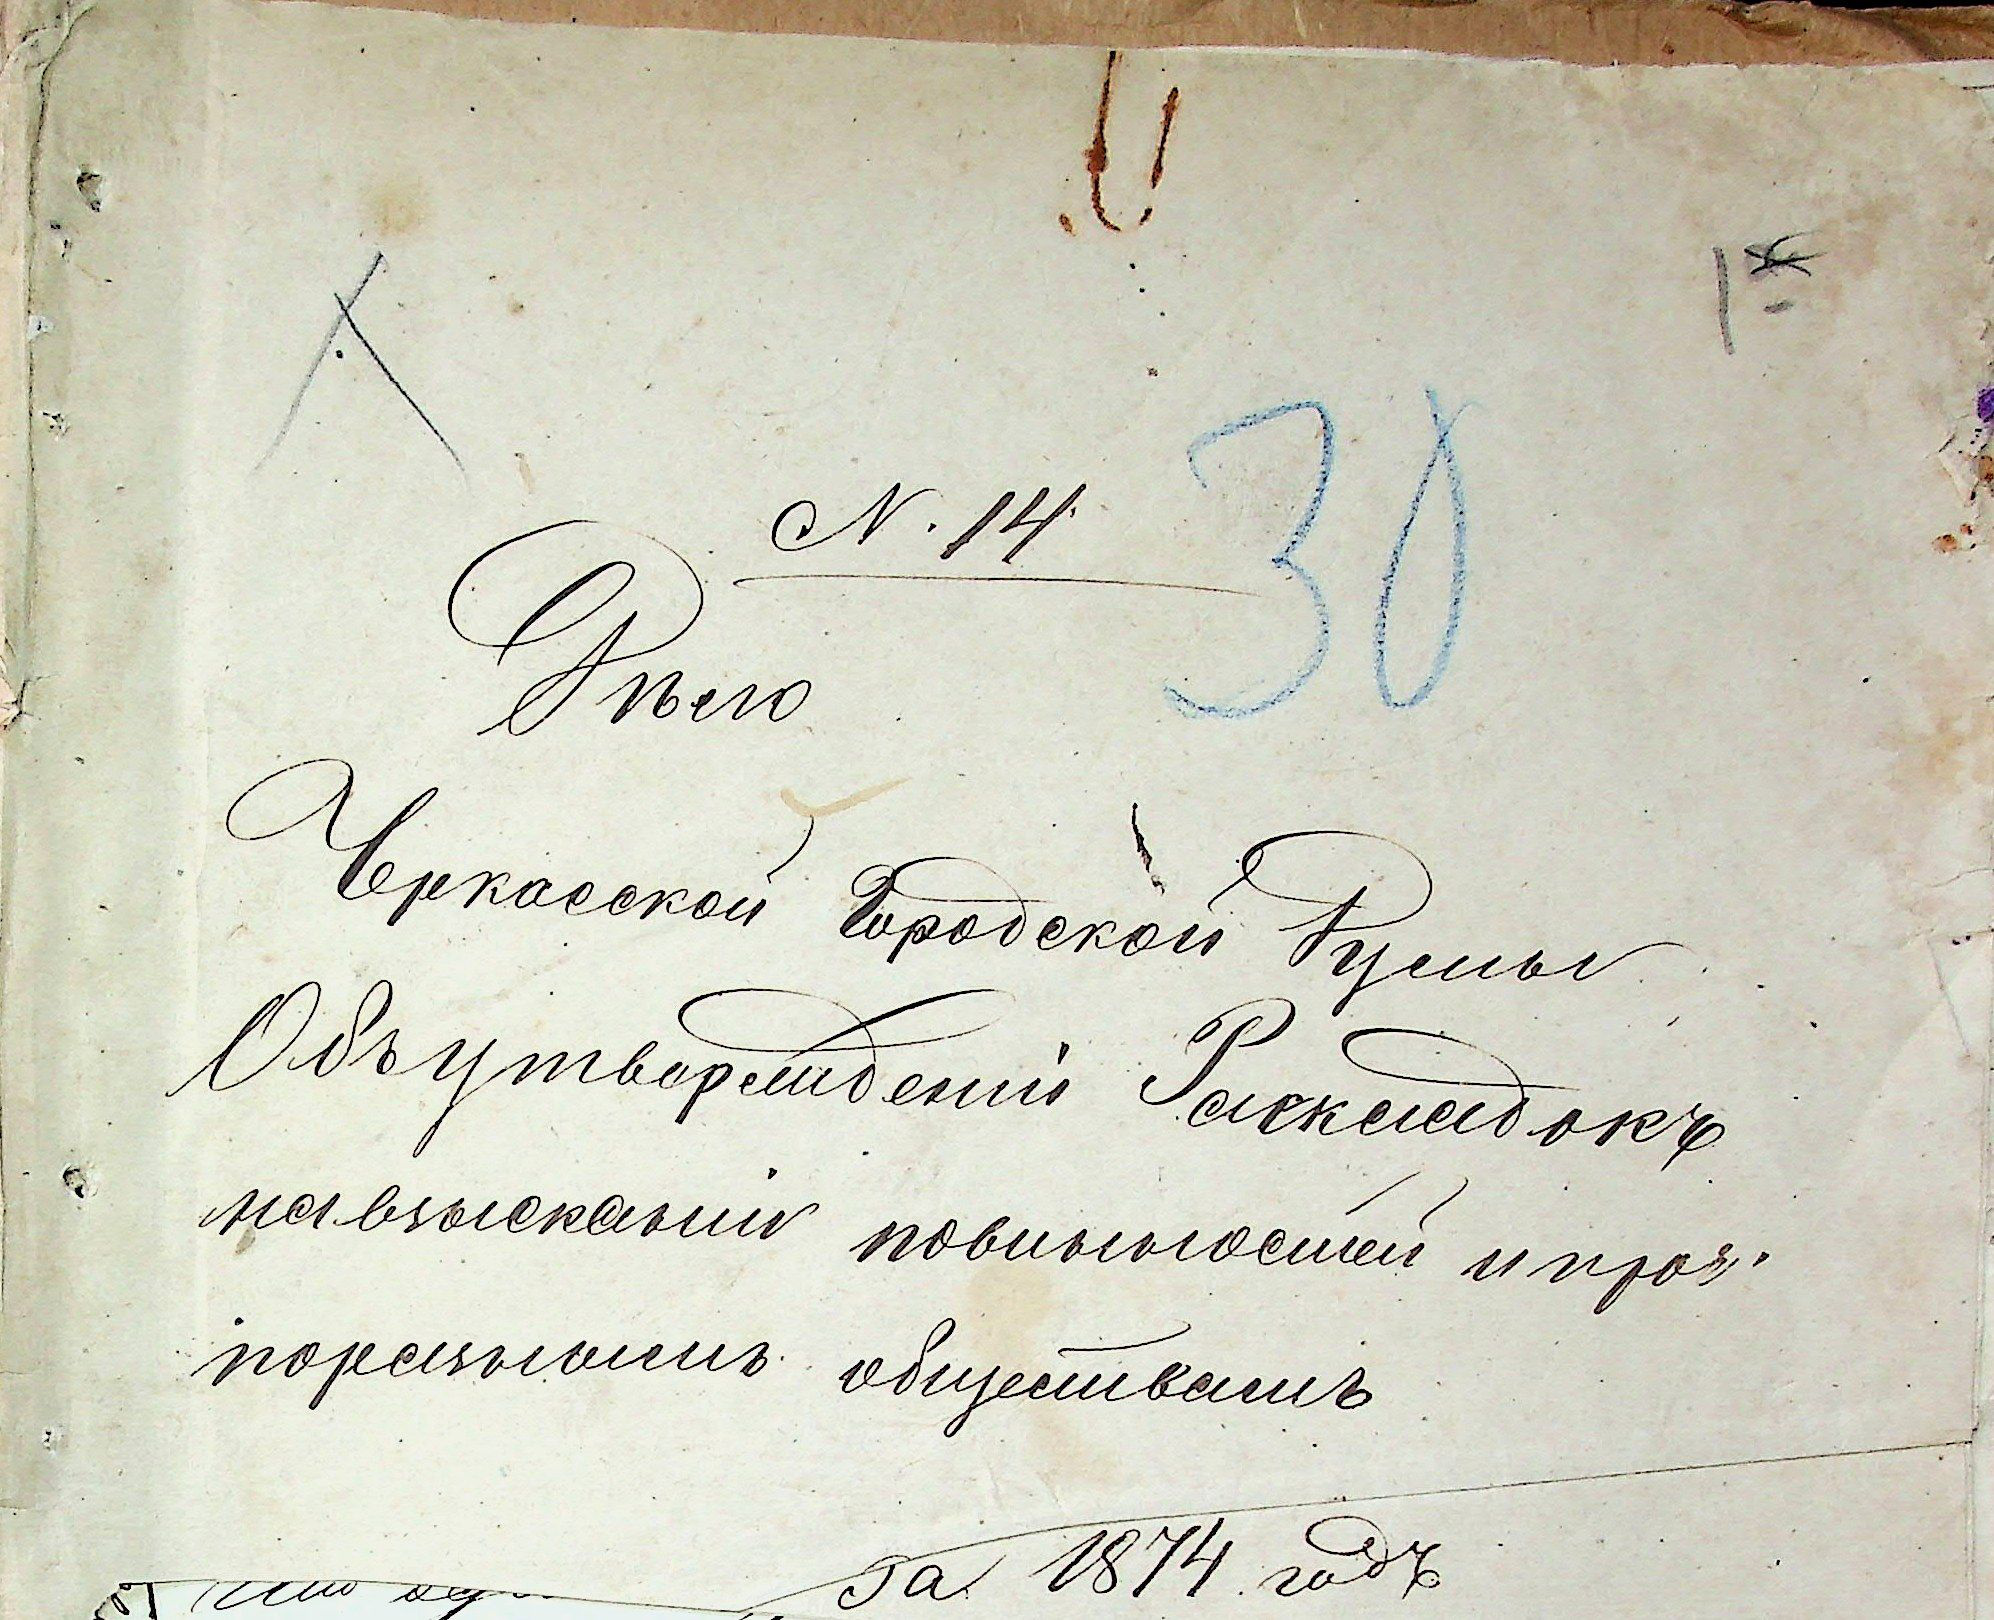 N. 14.
30
Дѣло
Черкасской Городской Думы
Объутвержденіи Раскладокъ
навзысканіи повинностей и проч.
поразнымъ обществамъ
За 1874 годъ